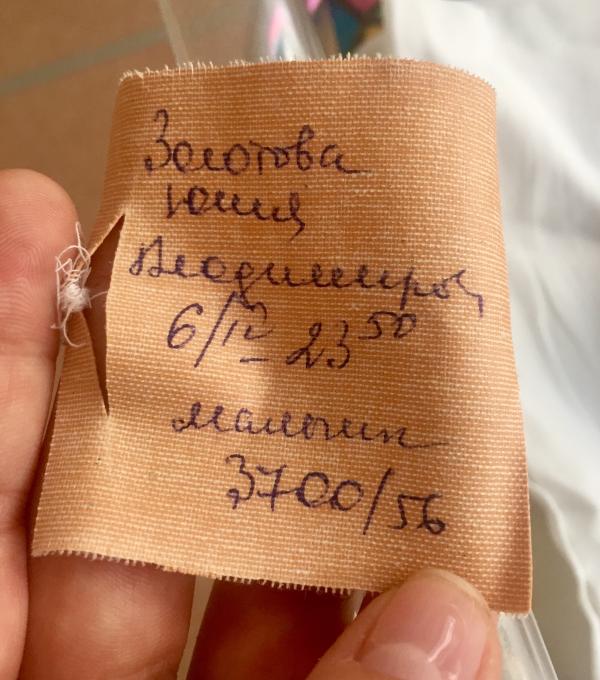 Золотова
Юлия
Владимиров
6/IV 23 50
мальчик
3700/56